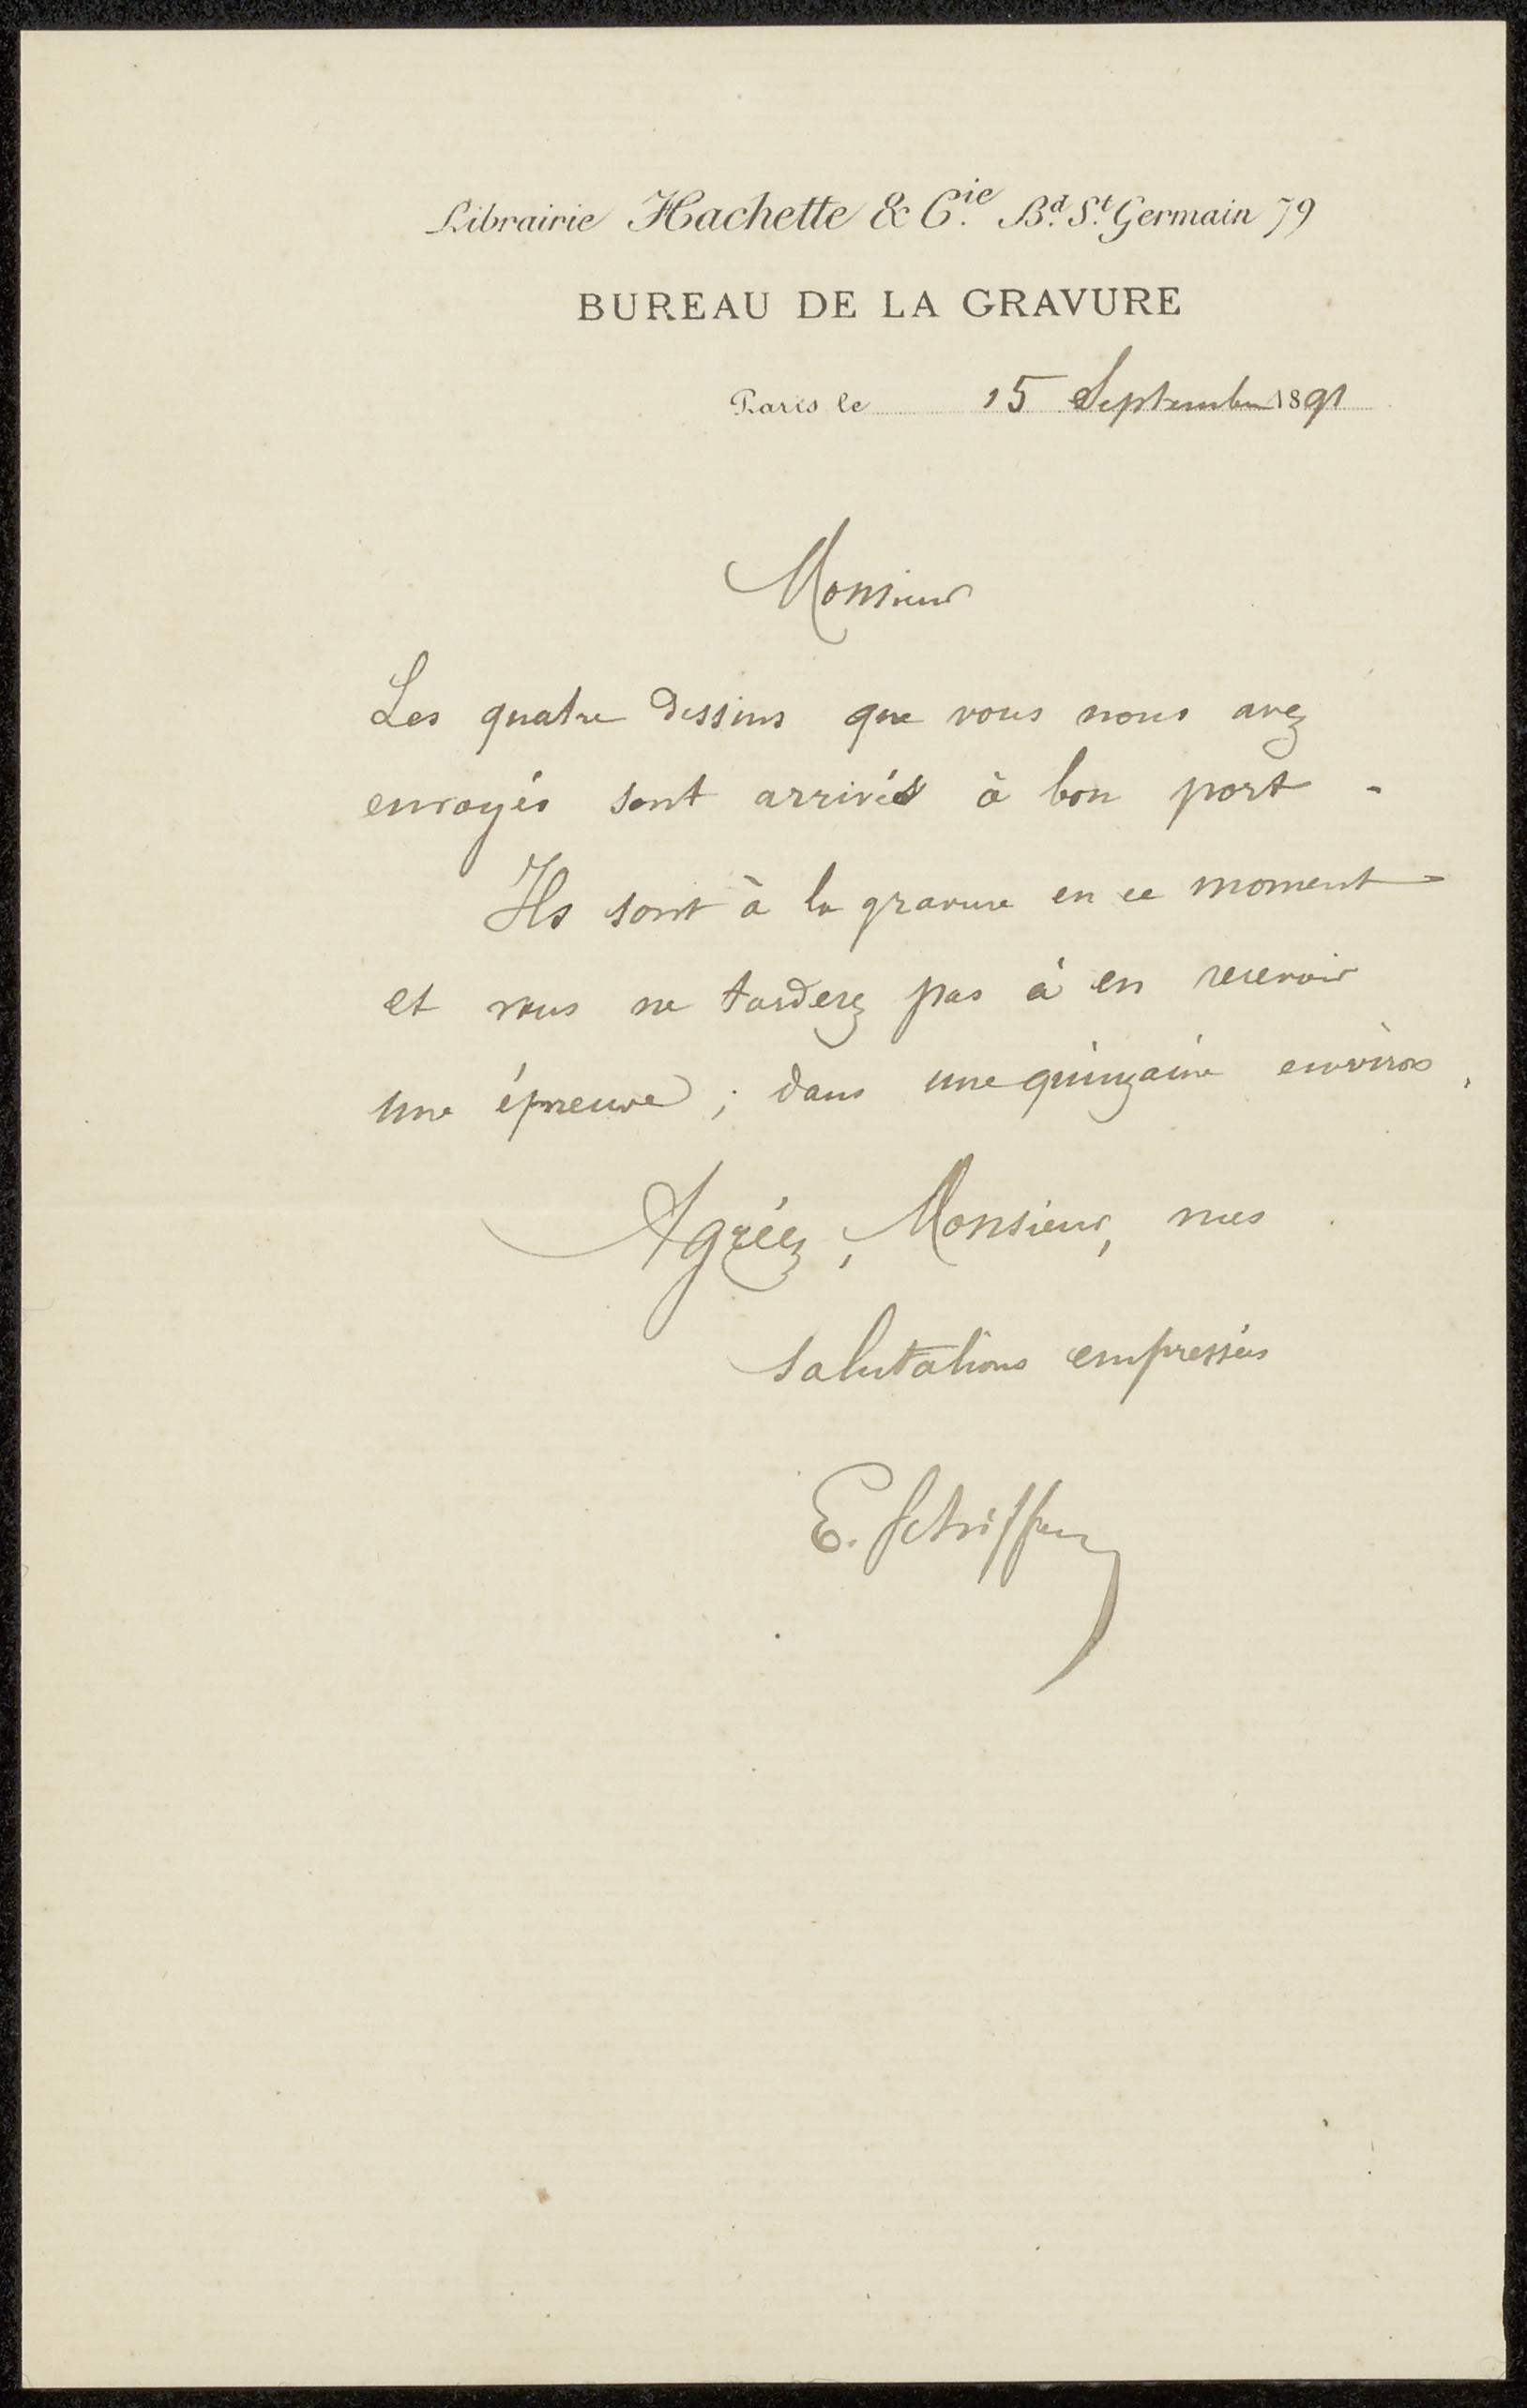 Librairie Hachette & Cie. Bd. St. Germain 79
BUREAU DE LA GRAVURE
Paris le 15 Septembre 1891
Monsieur
Les quatre dessins que vous nous avez
envoyés sont arrivés à bon port -
Ils sont à la gravure en ce moment
et vous ne tarderez pas à en recevoir
une épreuve ; dans une quinzaine environ,
Agréez, Monsieur, mes
salutations empressées
E.